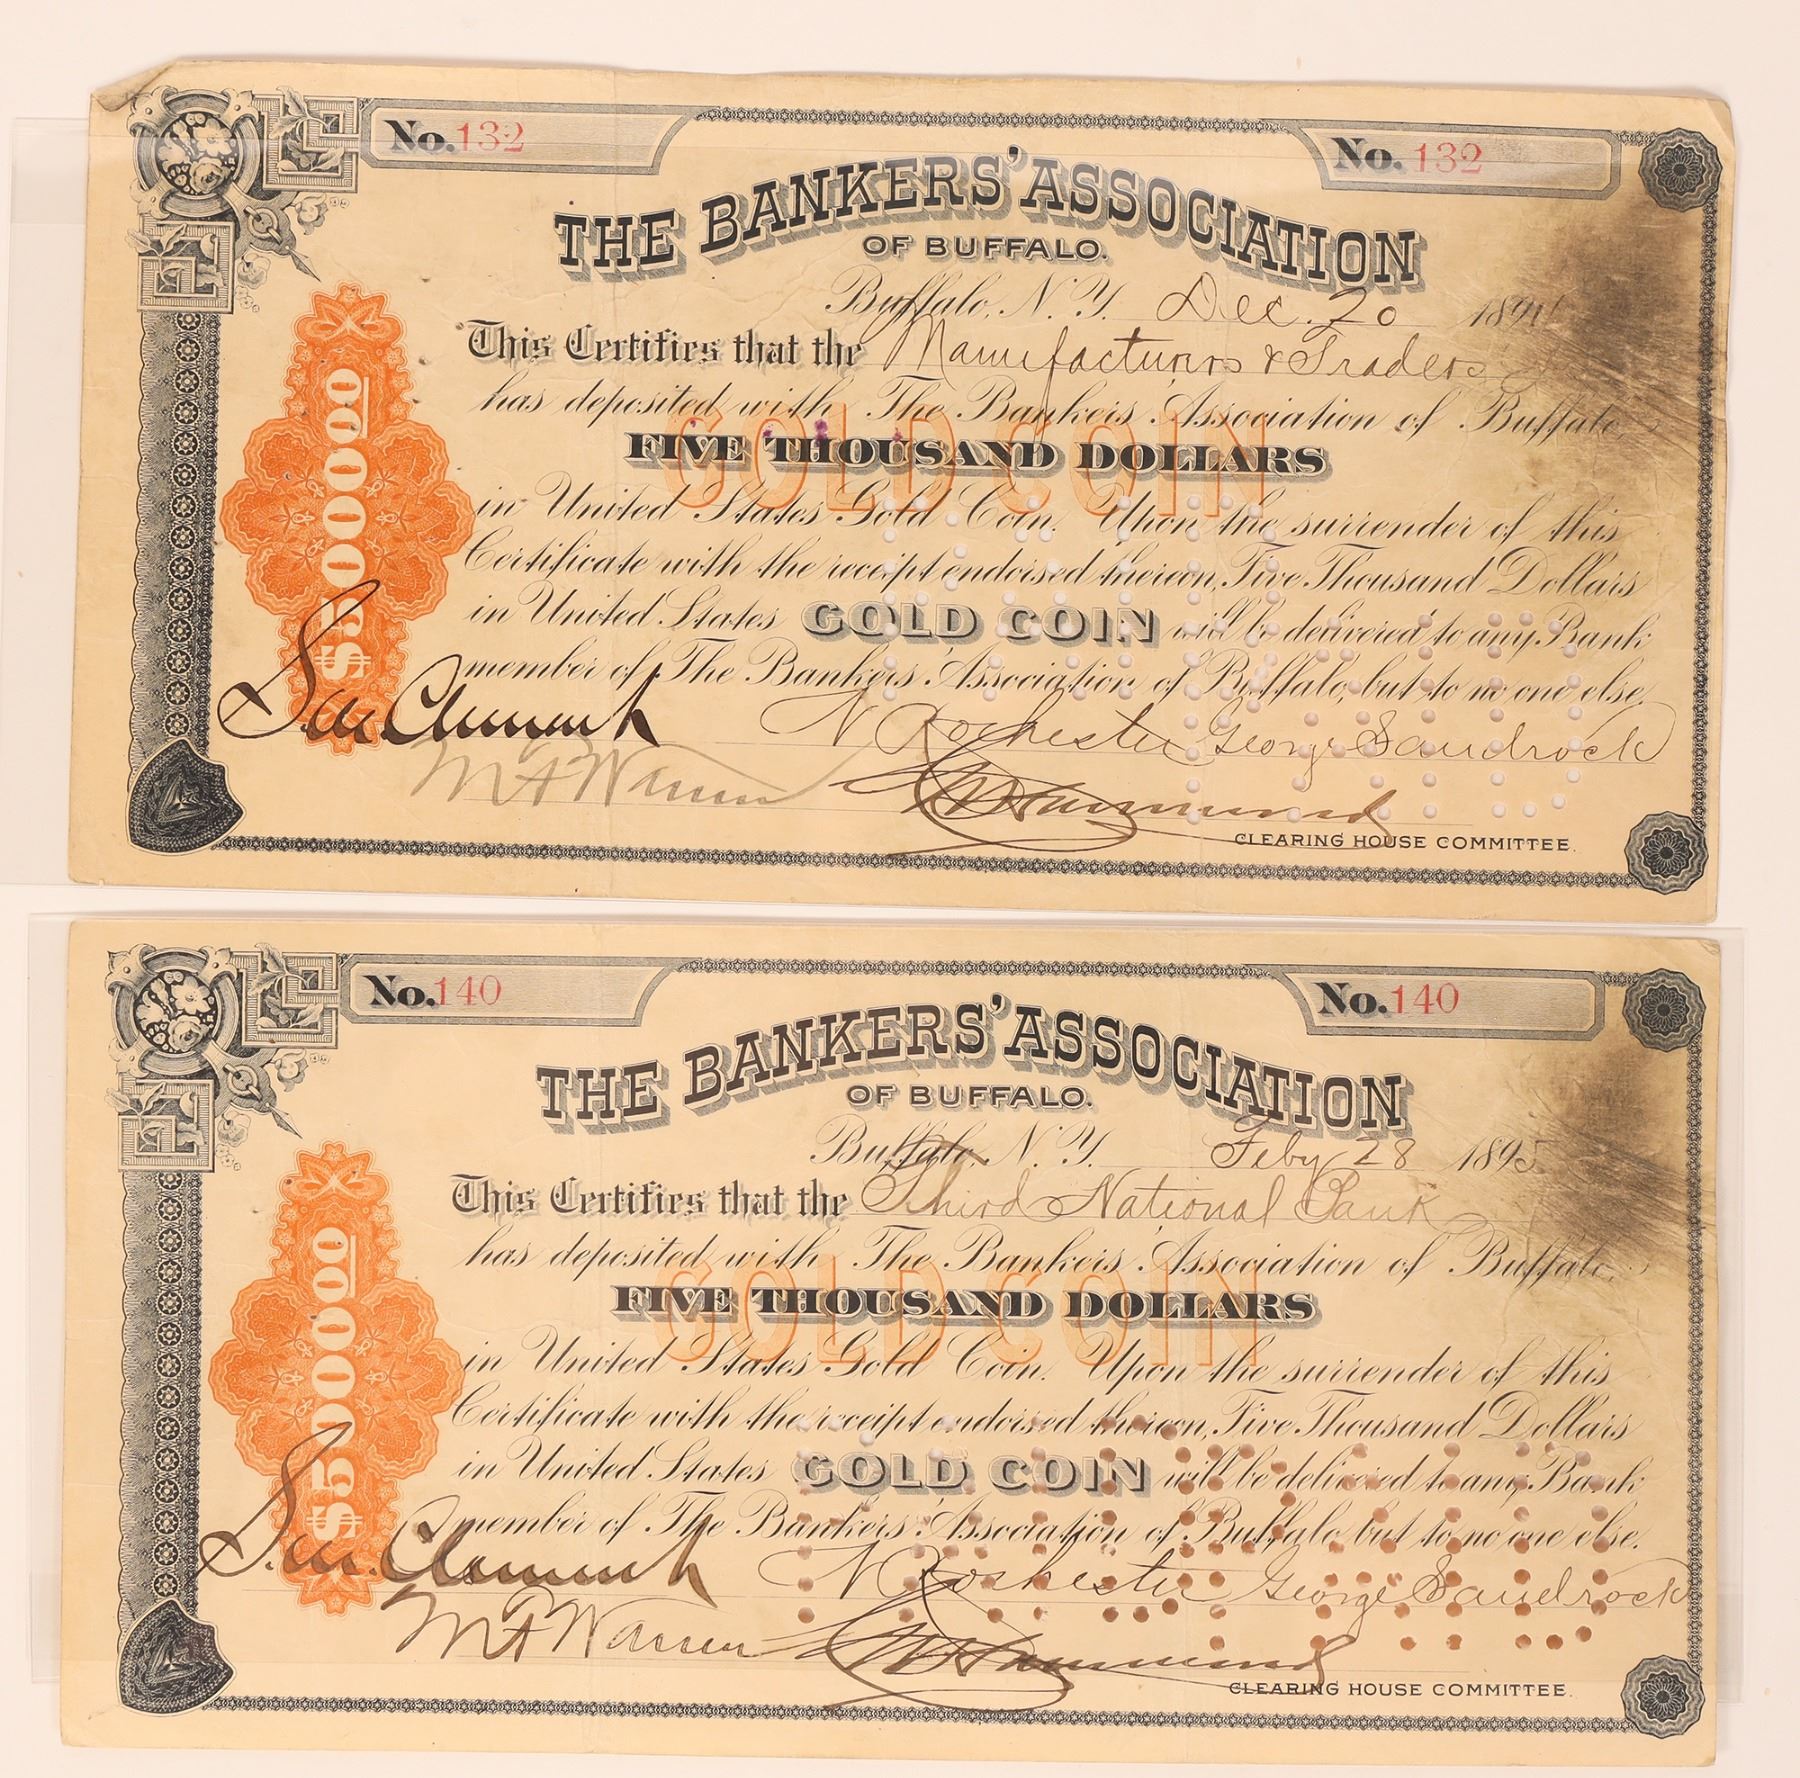 No. 132 No. 132
THE BANKERS' ASSOCIATION
OF BUFFALO.
Buffalo, N.Y. Dec. 20 189
This Certifies that the Manufacturers & Traders
has deposited with The Bankers' Association of Buffalo,
GOLD COIN
FIVE THOUSAND DOLLARS
in United States Gold Coin. Upon the surrender of this
Certificate with the receipt endorsed thereon, Five Thousand Dollars
in United States GOLD COIN will be delivered to any Bank
member of The Bankers' Association of Buffalo, but to no one else.
$5000.00
S. M. Clement N Rochester George Sandrock
CLEARING HOUSE COMMITTEE.
No. 140 No. 140
THE BANKERS' ASSOCIATION
OF BUFFALO.
Buffalo, N.Y. Feby 28 1895
This Certifies that the Third National Bank
has deposited with The Bankers' Association of Buffalo,
GOLD COIN
FIVE THOUSAND DOLLARS
in United States Gold Coin. Upon the surrender of this
Certificate with the receipt endorsed thereon, Five Thousand Dollars
in United States GOLD COIN will be delivered to any Bank
member of The Bankers' Association of Buffalo, but to no one else.
$5000.00
S. M. Clement N Rochester George Sandrock
CLEARING HOUSE COMMITTEE.